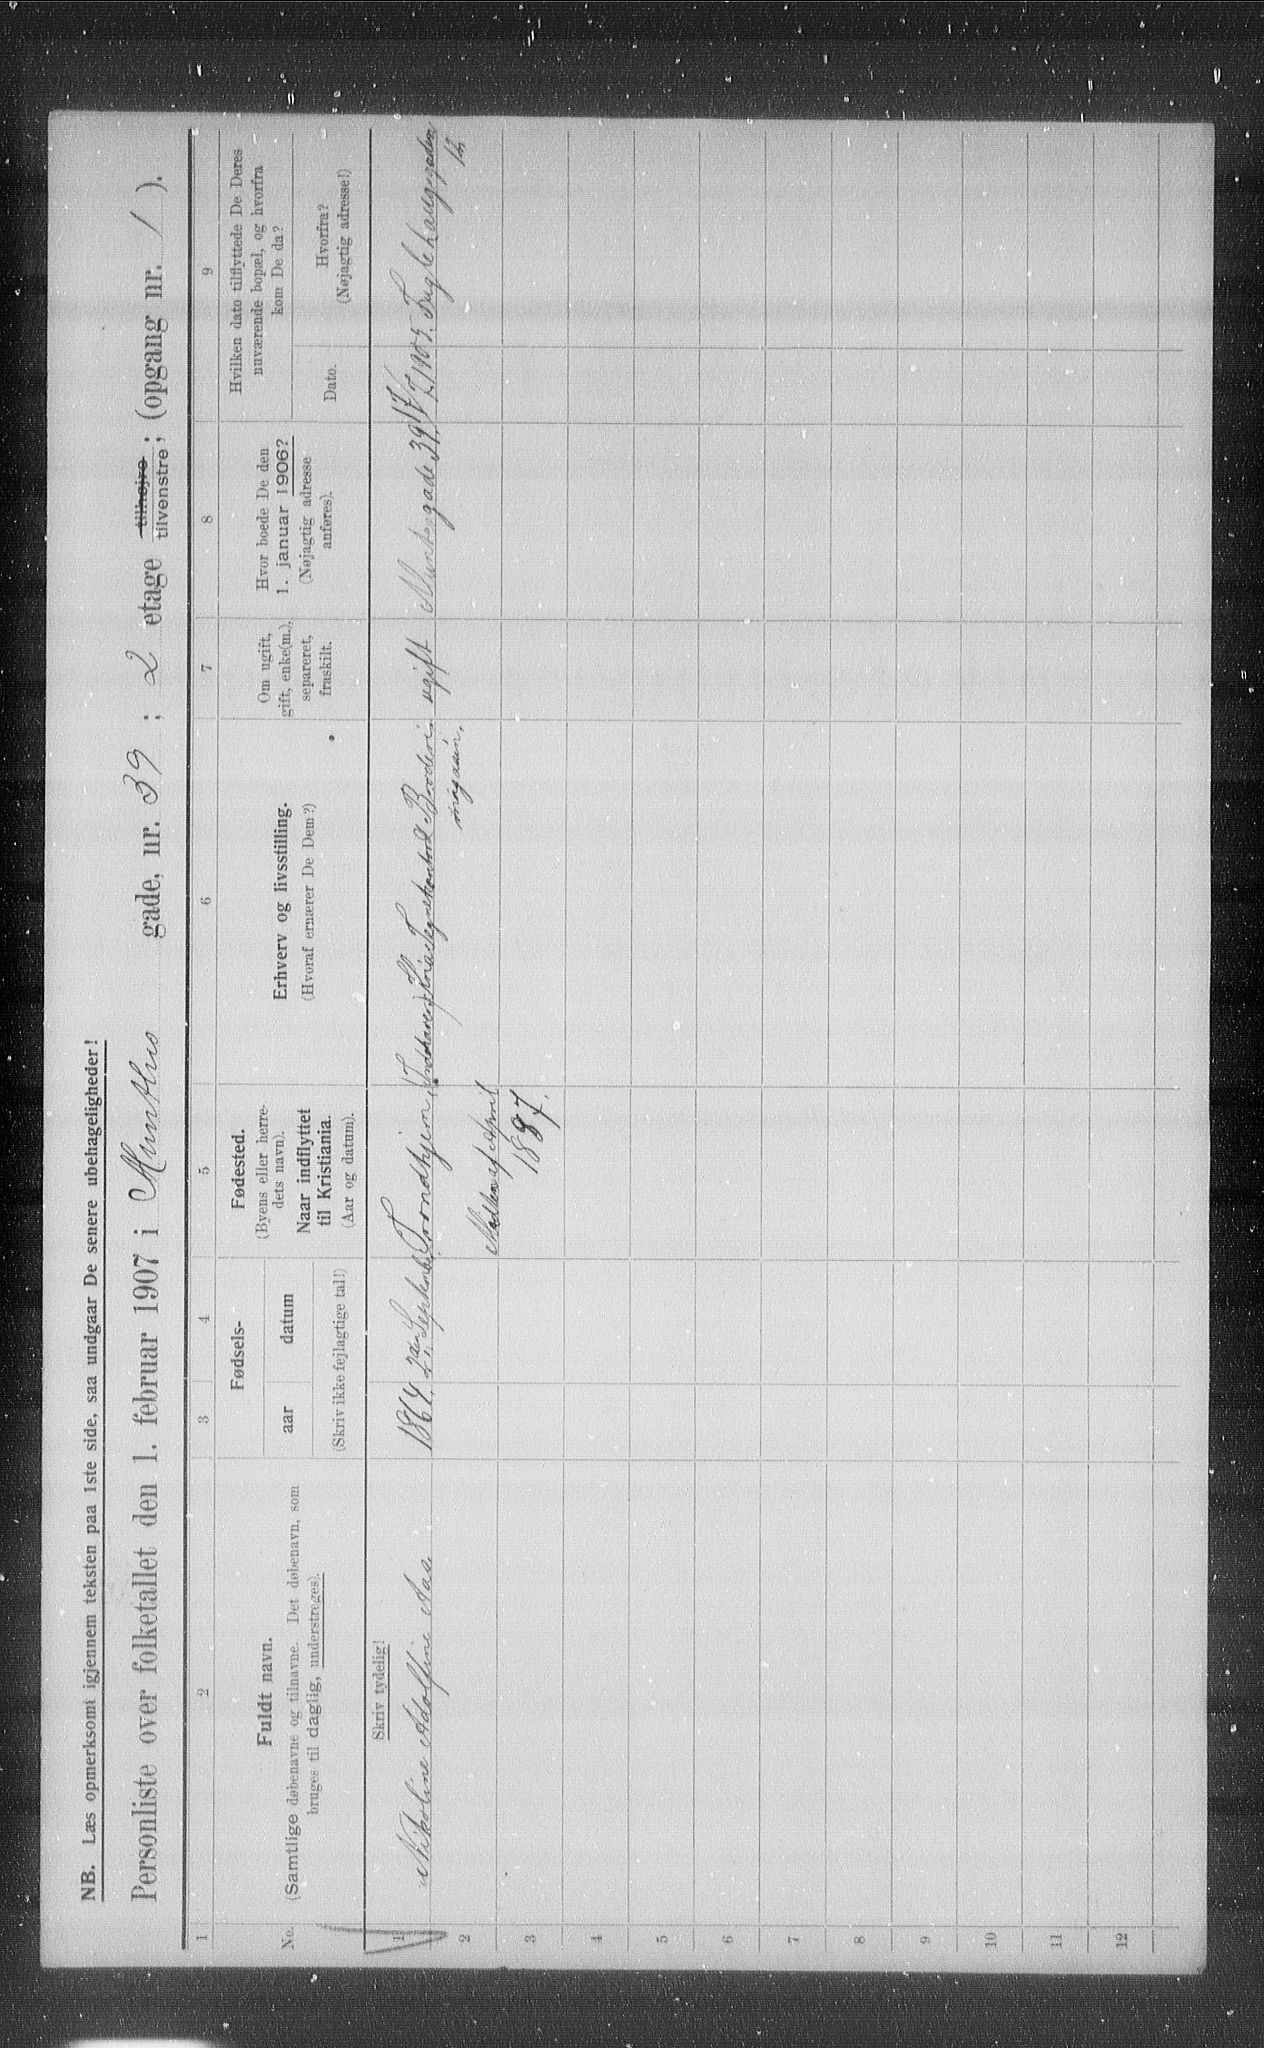 NB. Læs opmerksomt igjennem teksten paa 1ste side, saa undgaar De senere ubehageligheder!
Personliste over folketallet den 1. februar 1907 i Munthes gade, nr. 39 ; 2 etage tilhøjre tilvenstre ; (opgang nr. 1 ).
1 2 3 4 5 6 7 8 9
No.
Fuldt navn.
(Samtlige døbenavne og tilnavne. Det døbenavn, som
bruges til daglig, understreges).
Fødsels-
aar datum
(Skriv ikke fejlagtige tal!)
Fødested.
(Byens eller herre-
dets navn).
Naar indflyttet
til Kristiania.
(Aar og datum).
Erhverv og livsstilling.
(Hvoraf ernærer De Dem?)
Om ugift,
gift, enke(m.),
separeret,
fraskilt.
Hvor boede De den
1. januar 1906?
(Nøjagtig adresse
anføres).
Hvilken dato tilflyttede De Deres
nuværende bopæl, og hvorfra
kom De da?
Dato.
Hvorfra?
(Nøjagtig adresse!)
Skriv tydelig!
1 Nikoline Adolfine Aas 1864. 2den September Trondhjem, Indehaver Kria Tegnekontor & Broderi- ugift Munthesgade 39. 1905. Fuglehauggaden
magasin. 12
2 Midten af April
3 1887.
4
5
6
7
8
9
10
11
12